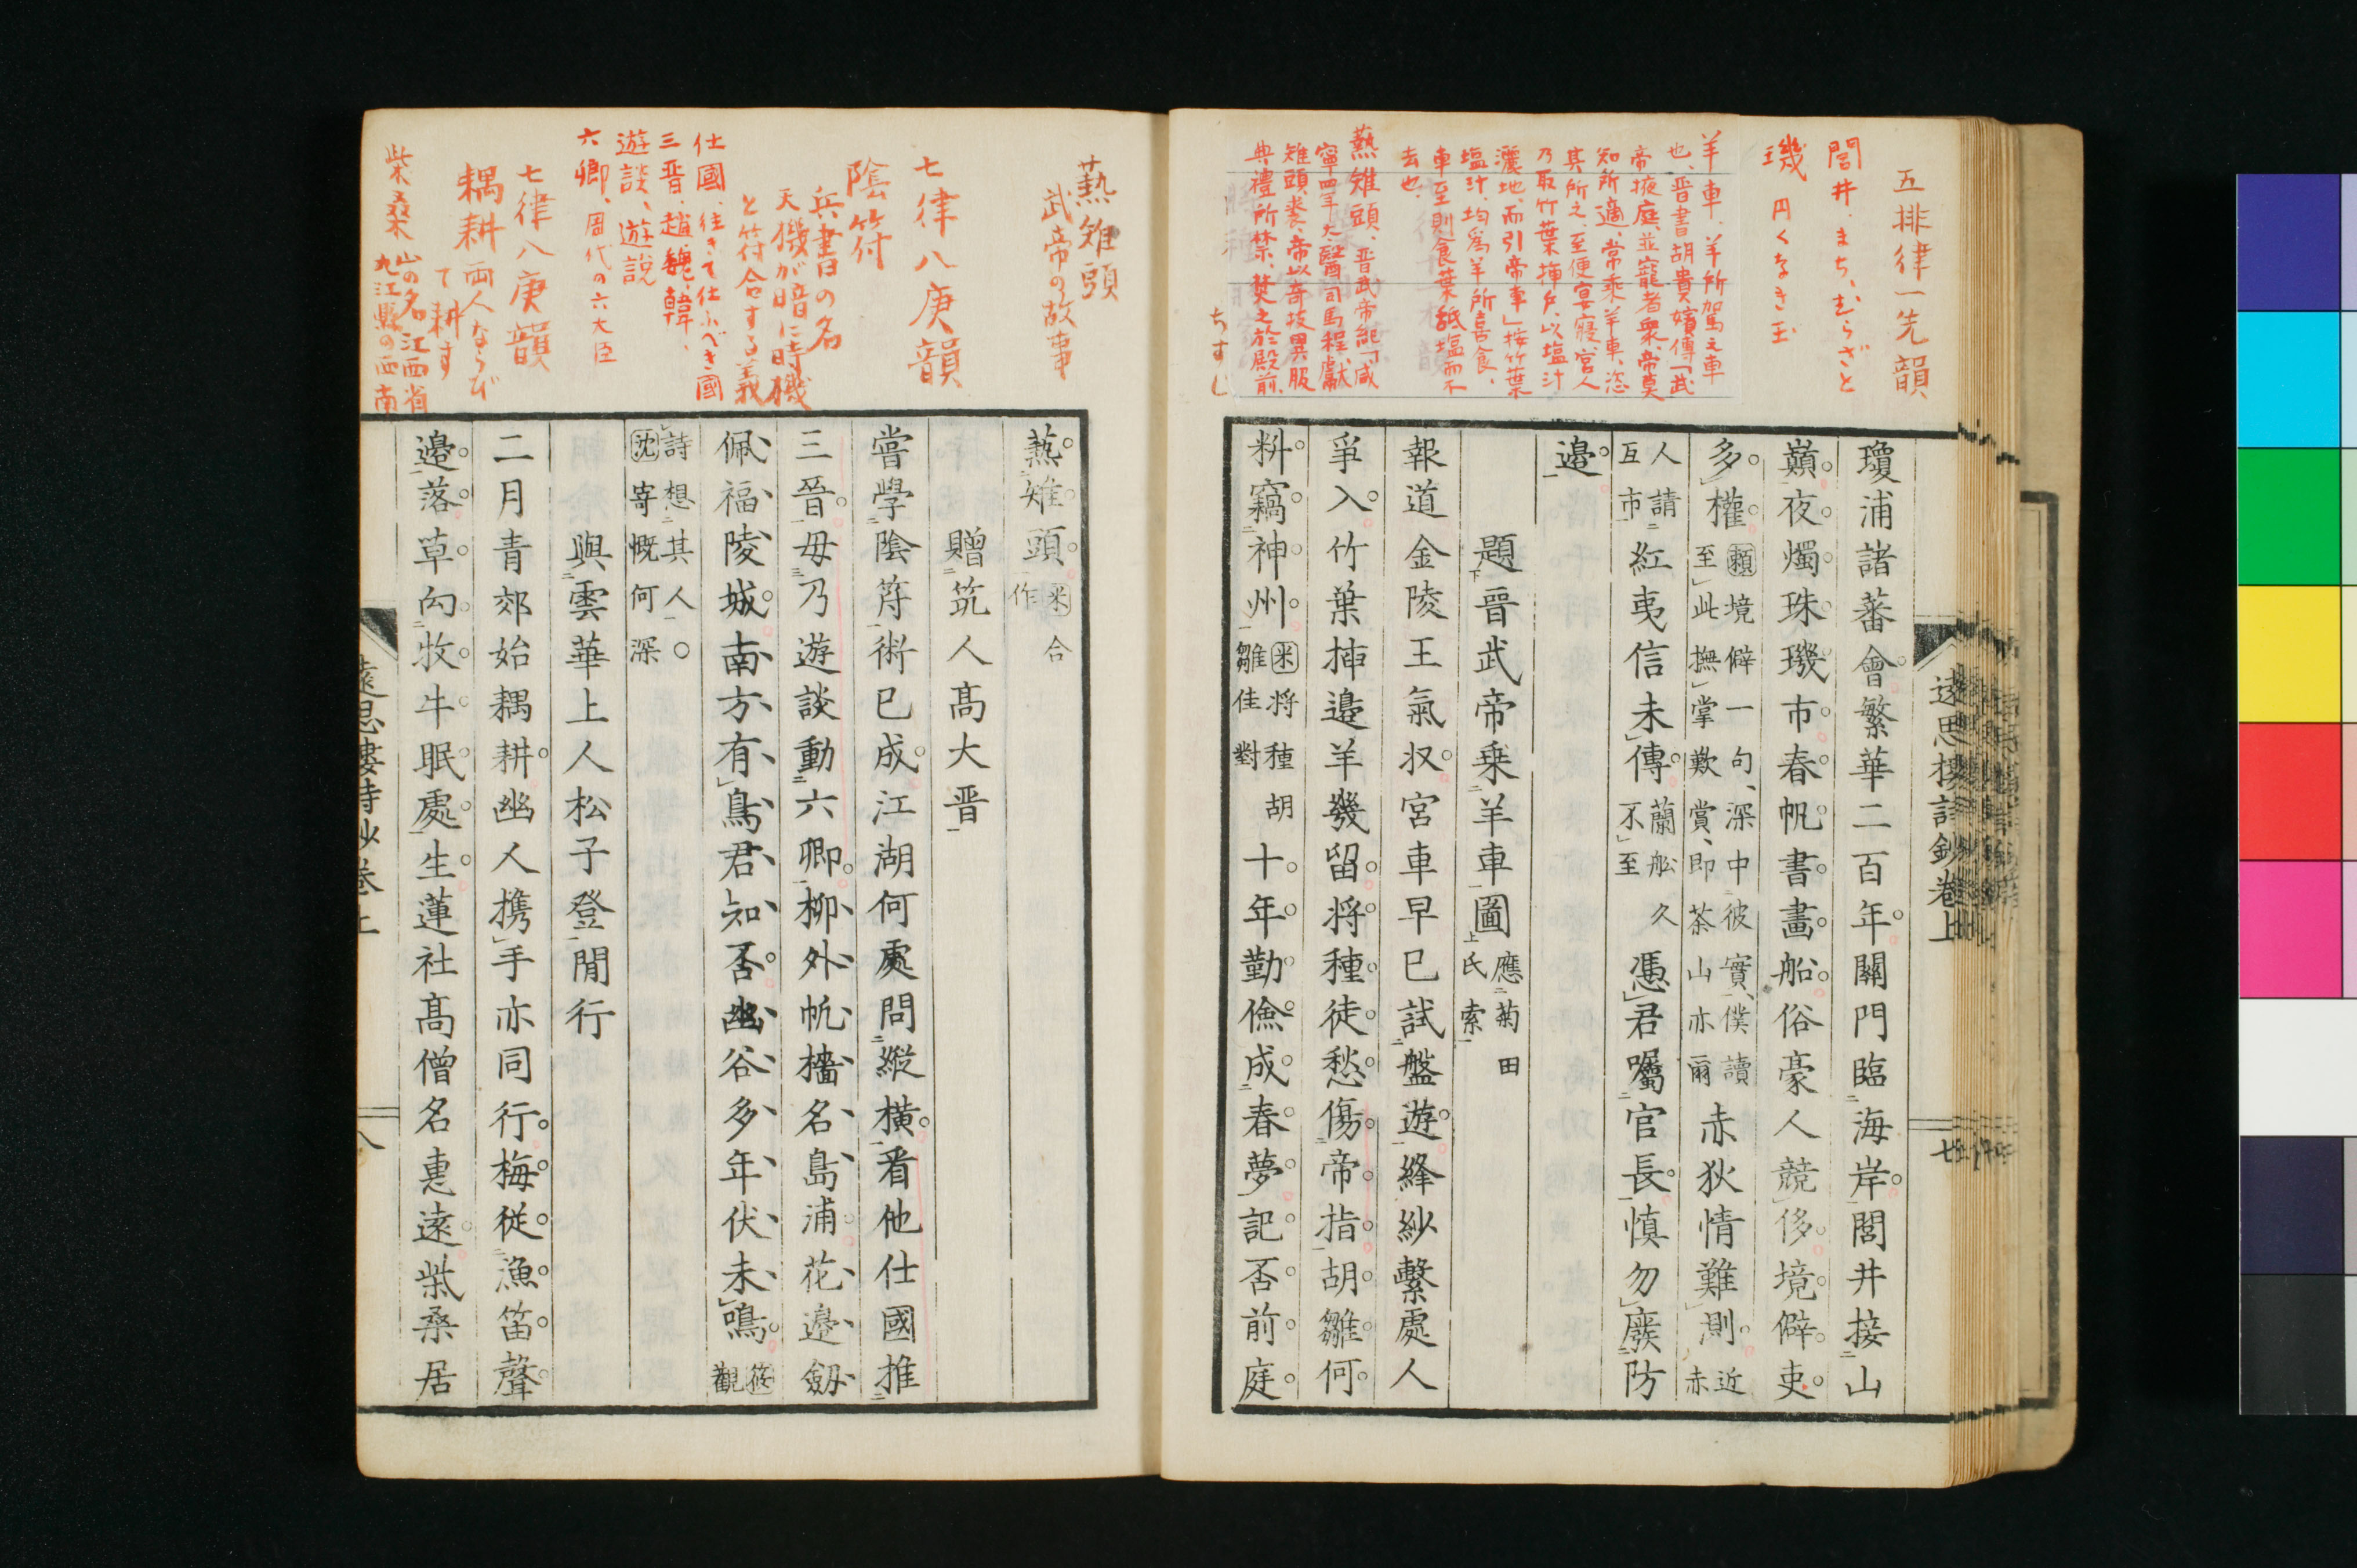 五排律一先韻
閭井、まち、むらざと
璣 円くなき玉
羊車、羊所駕之車
也、晋書胡貴嬪傳「武
帝掖庭、並寵者衆、帝莫
知所適、常乘羊車、恣
其所之、至便宴寢、宮人
乃取竹葉挿戶、以塩汁
灑地、而引帝車」按竹葉
塩汁、均爲羊所喜食、
車至則食葉舐塩而不
去也
爇雉頭、晋武帝紀「咸
寧四年大醫司馬程據獻
雉頭裘、帝以奇技異服
典禮所禁、焚之於殿前、
ちすじ
瓊浦諸蕃會繁華二百年關門臨海岸閭井接山
巔夜燭珠璣市春帆書畫船俗豪人競侈境僻吏
多權
賴境僻一句、深中彼實、僕讀
至此撫掌歎賞、即茶山亦爾
赤狄情難測
近
赤
人請
互市
紅夷信未傳
蘭舩久
不至
憑君囑官長慎勿廢防
邉
題晋武帝乗羊車圖
應菊田
氏索
報道金陵王氣収宮車早已試盤遊絳紗繫處人
爭入竹葉挿邉羊幾留將種徒愁傷帝指胡雛何
料竊神州
米將種胡
雛佳對
十年勤儉成春夢記否前庭
遠思樓詩鈔卷上
七
爇雉頭
武帝の故事
七律八庚韻
陰符
兵書の名
天機が暗に時機
と符合する義
仕國、往きて仕ふべき國
三晋、趙、魏、韓、
遊談、遊説
六卿、周代の六大臣
七律八庚韻
耦耕 両人ならび
て耕す
柴桑 山の名、江西省
九江縣の西南
爇雉頭
米合
作
贈筑人高大晋
嘗學陰符術已成江湖何處問縱橫看他仕國推
三晉毋乃遊談動六卿柳外帆檣名島浦花邉劔
佩福陵城南方有鳥君知否幽谷多年伏未鳴
筱
觀
詩想其人○
沈寄慨何深
與雲華上人松子登閒行
二月青郊始耦耕幽人携手亦同行梅從漁笛聲
邉落草向牧牛眠處生蓮社高僧名惠遠柴桑居
遠思樓詩鈔卷上
八